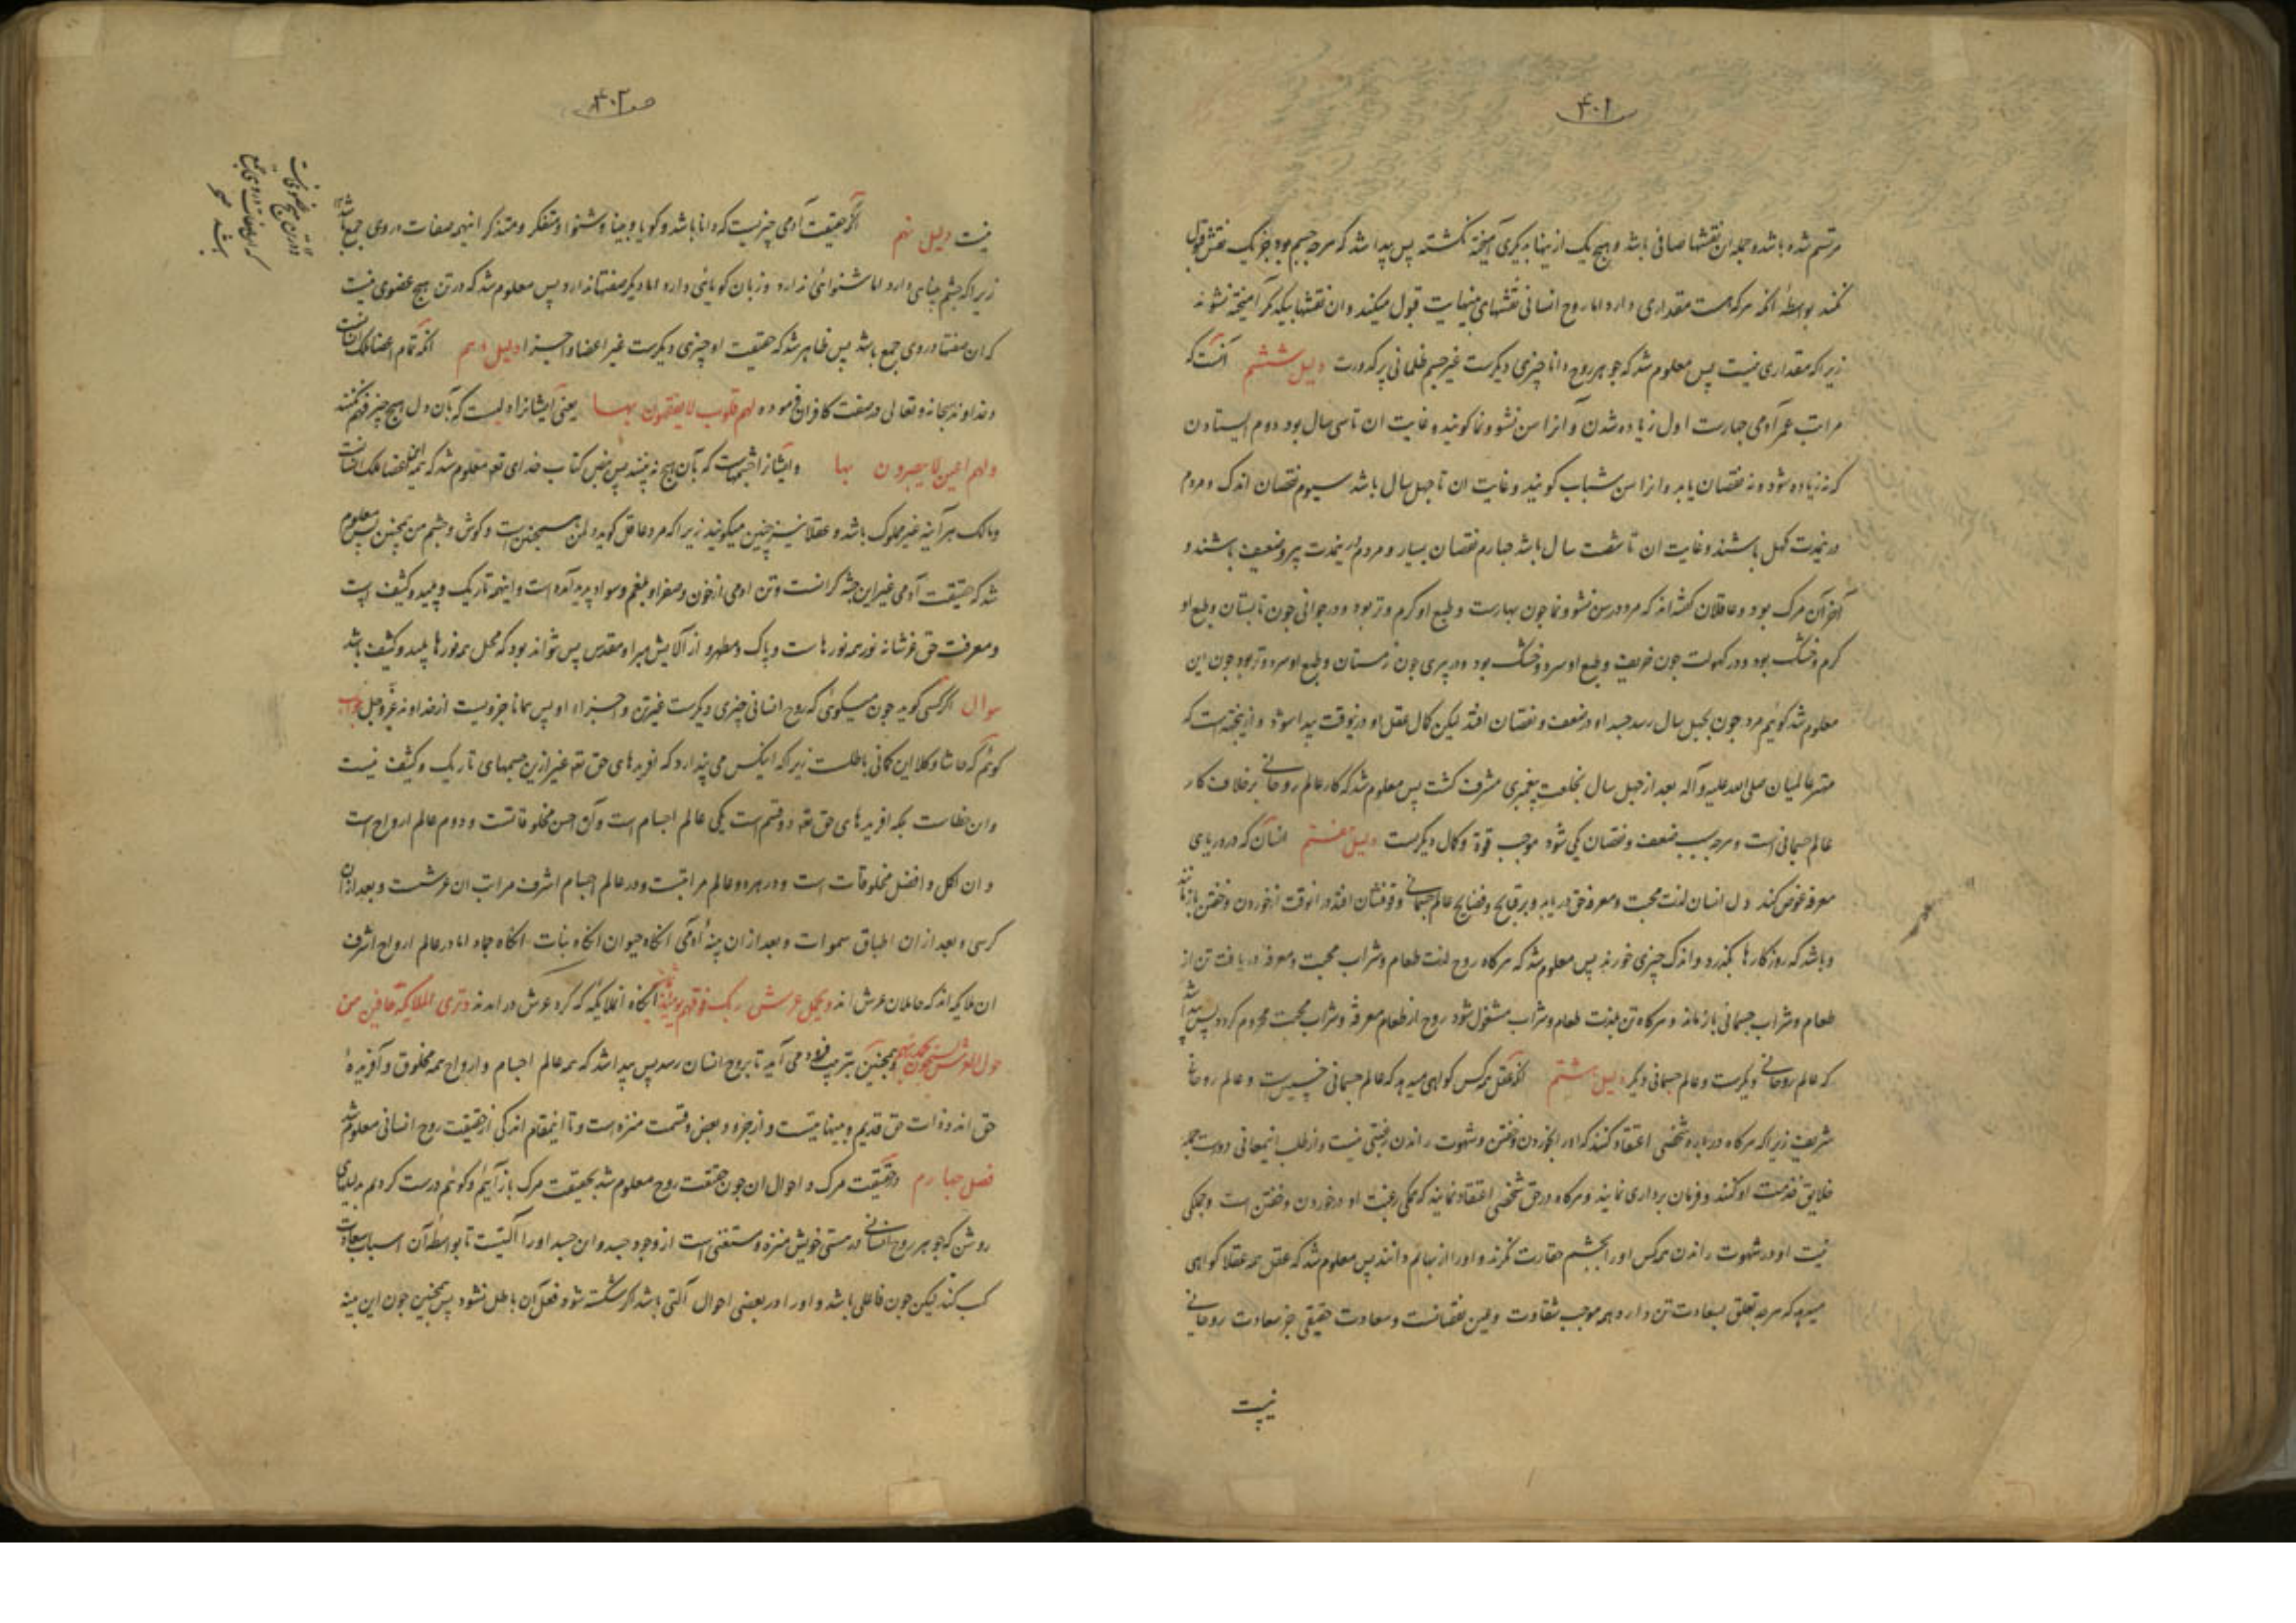 ۴۰۱
مرتسم شده باشد و جمله ان نقشها صافی باشد و هیچ یک از ینها بدیکری آمیخته نکشته پس پیدا شد که هرچه جسم بود جز یک نقش قبول
نکند بواسطهٔ انکه هرکه هست مقداری دارد اما روح انسانی نقشهای بینهایت قبول میکند و ان نقشها بیکدیکر آمیخته نشوند
زیرا که مقداری نیست پس معلوم شد که جوهر روح دانا چیزی دیکرست غیر جسم ظلمانی پر کدورت دلیل ششم آنست که
مراتب عمر آدمی چهارست اول زیاده شدن و آنرا سن نشو و نما کویند و غایت ان تا سی سال بود دوم ایستادن
که نه زیاده شود و نه نقصان یابد و انرا سن شباب کویند و غایت ان تا چهل سال باشد سیوم نقصان اندک و مردم
درینمدت کهل باشند و غایت ان تا شصت سال باشد چهارم نقصان بسیار و مردم درینمدت پیر و ضعیف باشند و
آخر آن مرک بود و عاقلان کفته‌اند که مرد در سن نشو و نما چون بهارست و طبع او کرم و تر بود و در جوانی چون تابستان و طبع او
کرم و خشک بود و در کهولت چون خریف و طبع او سرد و خشک بود و در پیری چون زمستان و طبع او سرد و تر بود چون این
معلوم شد کوئیم مرد چون بچهل سال رسد جسد او در ضعف و نقصان افتد لیکن کمال عقل او درینوقت پیدا شود و ازینجهتست که
مهتر عالمیان صلی الله علیه و آله بعد از چهل سال بخلعت پیغمبری مشرف کشت پس معلوم شد که کار عالم روحانی برخلاف کار
عالم جسمانی است و هرچه سبب ضعف و نقصان یکی شود موجب قوة و کمال دیکرست دلیل هفتم انسان که در دریای
معرفة غوض کند و دل انسان لذت محبت و معرفة حق دریابد و بر قبایح و فضایح عالم جسمانی وقوفشان افتد در انوقت از خوردن و خفتن باز مانند
و باشد که روزکارها بکذرد و اندک چیزی خورند پس معلوم شد که هرکاه روح لذت طعام و شراب محبت و معرفة دریافت تن از
طعام و شراب جسمانی باز ماند و هرکاه تن بلذت طعام و شراب مشغول شود روح از طعام معرفة و شراب محبت محروم کردد پس پیدا شد
که عالم روحانی دیکرست و عالم جسمانی دیکر دلیل هشتم انکه عقل همه کس کواهی میدهد که عالم جسمانی خسیس است و عالم روحانی
شریف زیرا که هرکاه درباره شخصی اعتقاد کنند که او را بخوردن و خفتن و شهوت راندن رغبتی نیست و از طلب اینمعانی دورست جمله
خلایق خدمت او کنند و فرمان برداری نمایند و هرکاه در حق شخصی اعتقاد نمایند که همکی رغبت او در خوردن و خفتن است و جملکی
نیت او در شهوت راندن همه کس او را بچشم حقارت نکرند و او را از بهایم دانند پس معلوم شد که عقل همه عقلا کواهی
میدهد که هرچه تعلق بسعادت تن دارد همه موجب شقاوت و عین نقصانست و سعادت حقیقی جز سعادت روحانی
نیست
صفه ۴۰۲
نیست دلیل نهم انکه حقیقت آدمی چیزیست که دانا باشد و کویا و بینا و شنوا و متفکر و متذکر اینهمه صفات در وی جمع باشد
زیرا که چشم بینایی دارد اما شنوائی ندارد و زبان کویائی دارد اما دیکر صفتها ندارد پس معلوم شد که در تن هیچ عضوی نیست
که ان صفتها در وی جمع باشد پس ظاهر شد که حقیقت او چیزی دیکرست غیر اعضا و اجزا دلیل دهم انکه تمام اعضا ملک انسانست
و خداوند سبحانه و تعالی در صفت کافران فرموده لهم قلوب لا یفقهون بها یعنی ایشانرا دلیست که بآن دل هیچ چیز فهم نکنند
و لهم اعین لا یبصرون بها و ایشانرا چشمهاست که بآن هیچ نه بینند پس بنص کتاب خدای تعه معلوم شد که همه اعضا ملک انسانست
و مالک هر آینه غیر مملوک باشد و عقلا نیز چنین میکویند زیرا که مرد عاقل کوید دل من همچنین است و کوش و چشم من همچنین پس معلوم
شد که حقیقت آدمی غیر این جثه کرانست و تن ادمی از خون و صفرا و بلغم و سودا پدید آمده است و اینهمه تاریک و پلید و کثیف است
و معرفت حق عز شانه نور همه نورهاست و پاک و مطهر و از آلایش مبرا و مقدس پس نتواند بود که محل همه نورها پلید و کثیف باشد
سوال اکر کسی کوید چون میکوئی که روح انسانی چیزی دیکرست غیر تن و اجزاء او پس همانا جزویست از خداوند عز و جل جواب
کوئم که حاشا و کلا این کمانی باطلست زیرا که اینکس می پندارد که افریدهای حق تعه غیر ازین جسمهای تاریک و کثیف نیست
و ان خطاست بلکه افریدهای حق تعه دو قسم است یکی عالم اجسام است و آن اخس مخلوقاتست و دوم عالم ارواح است
و ان اکمل و افضل مخلوقات است و در هر دو عالم مراتبست و در عالم اجسام اشرف مراتب ان عرشست و بعد ازان
کرسی و بعد از ان اطباق سموات و بعد از ان بنیهٔ آدمی انکاه حیوان انکاه نبات انکاه جماد اما در عالم ارواح اشرف
ان ملایکه‌اند که حاملان عرش اند و یحمل عرش ربک فوقهم یومئذ ثمانیة انکاه انملایکه که کرد عرش در امدند و تری الملایکة حافین من
حول العرش یسبحون بحمد ربهم و همچنین بترتیب فرود می آید تا بروح انسان رسد پس پیدا شد که همه عالم اجسام و ارواح همه مخلوق و آفریدهٔ
حق اند و ذات حق قدیم و بینهایتست و از جزو و بعض و قسمت منزه است و تا اینمقام اندکی از حقیقت روح انسانی معلوم شد
فصل چهارم در حقیقت مرک و احوال ان چون حقیقت روح معلوم شد بحقیقت مرک باز آئیم و کوئیم درست کردیم بدلیلهای
روشن که جوهر روح انسانی در هستی خویش منزه و مستغنی است از وجود جسد و این جسد او را آلتیست تا بواسطهٔ آن اسباب سعادت
کسب کند لیکن چون فاعلی باشد و او را در بعضی احوال آلتی باشد اکر شکسته شود فعل آن باطل نشود پس همچنین چون این بنیه
در تن هیچ عضوی نیست
که این صفات در وی جمع
باشد صح